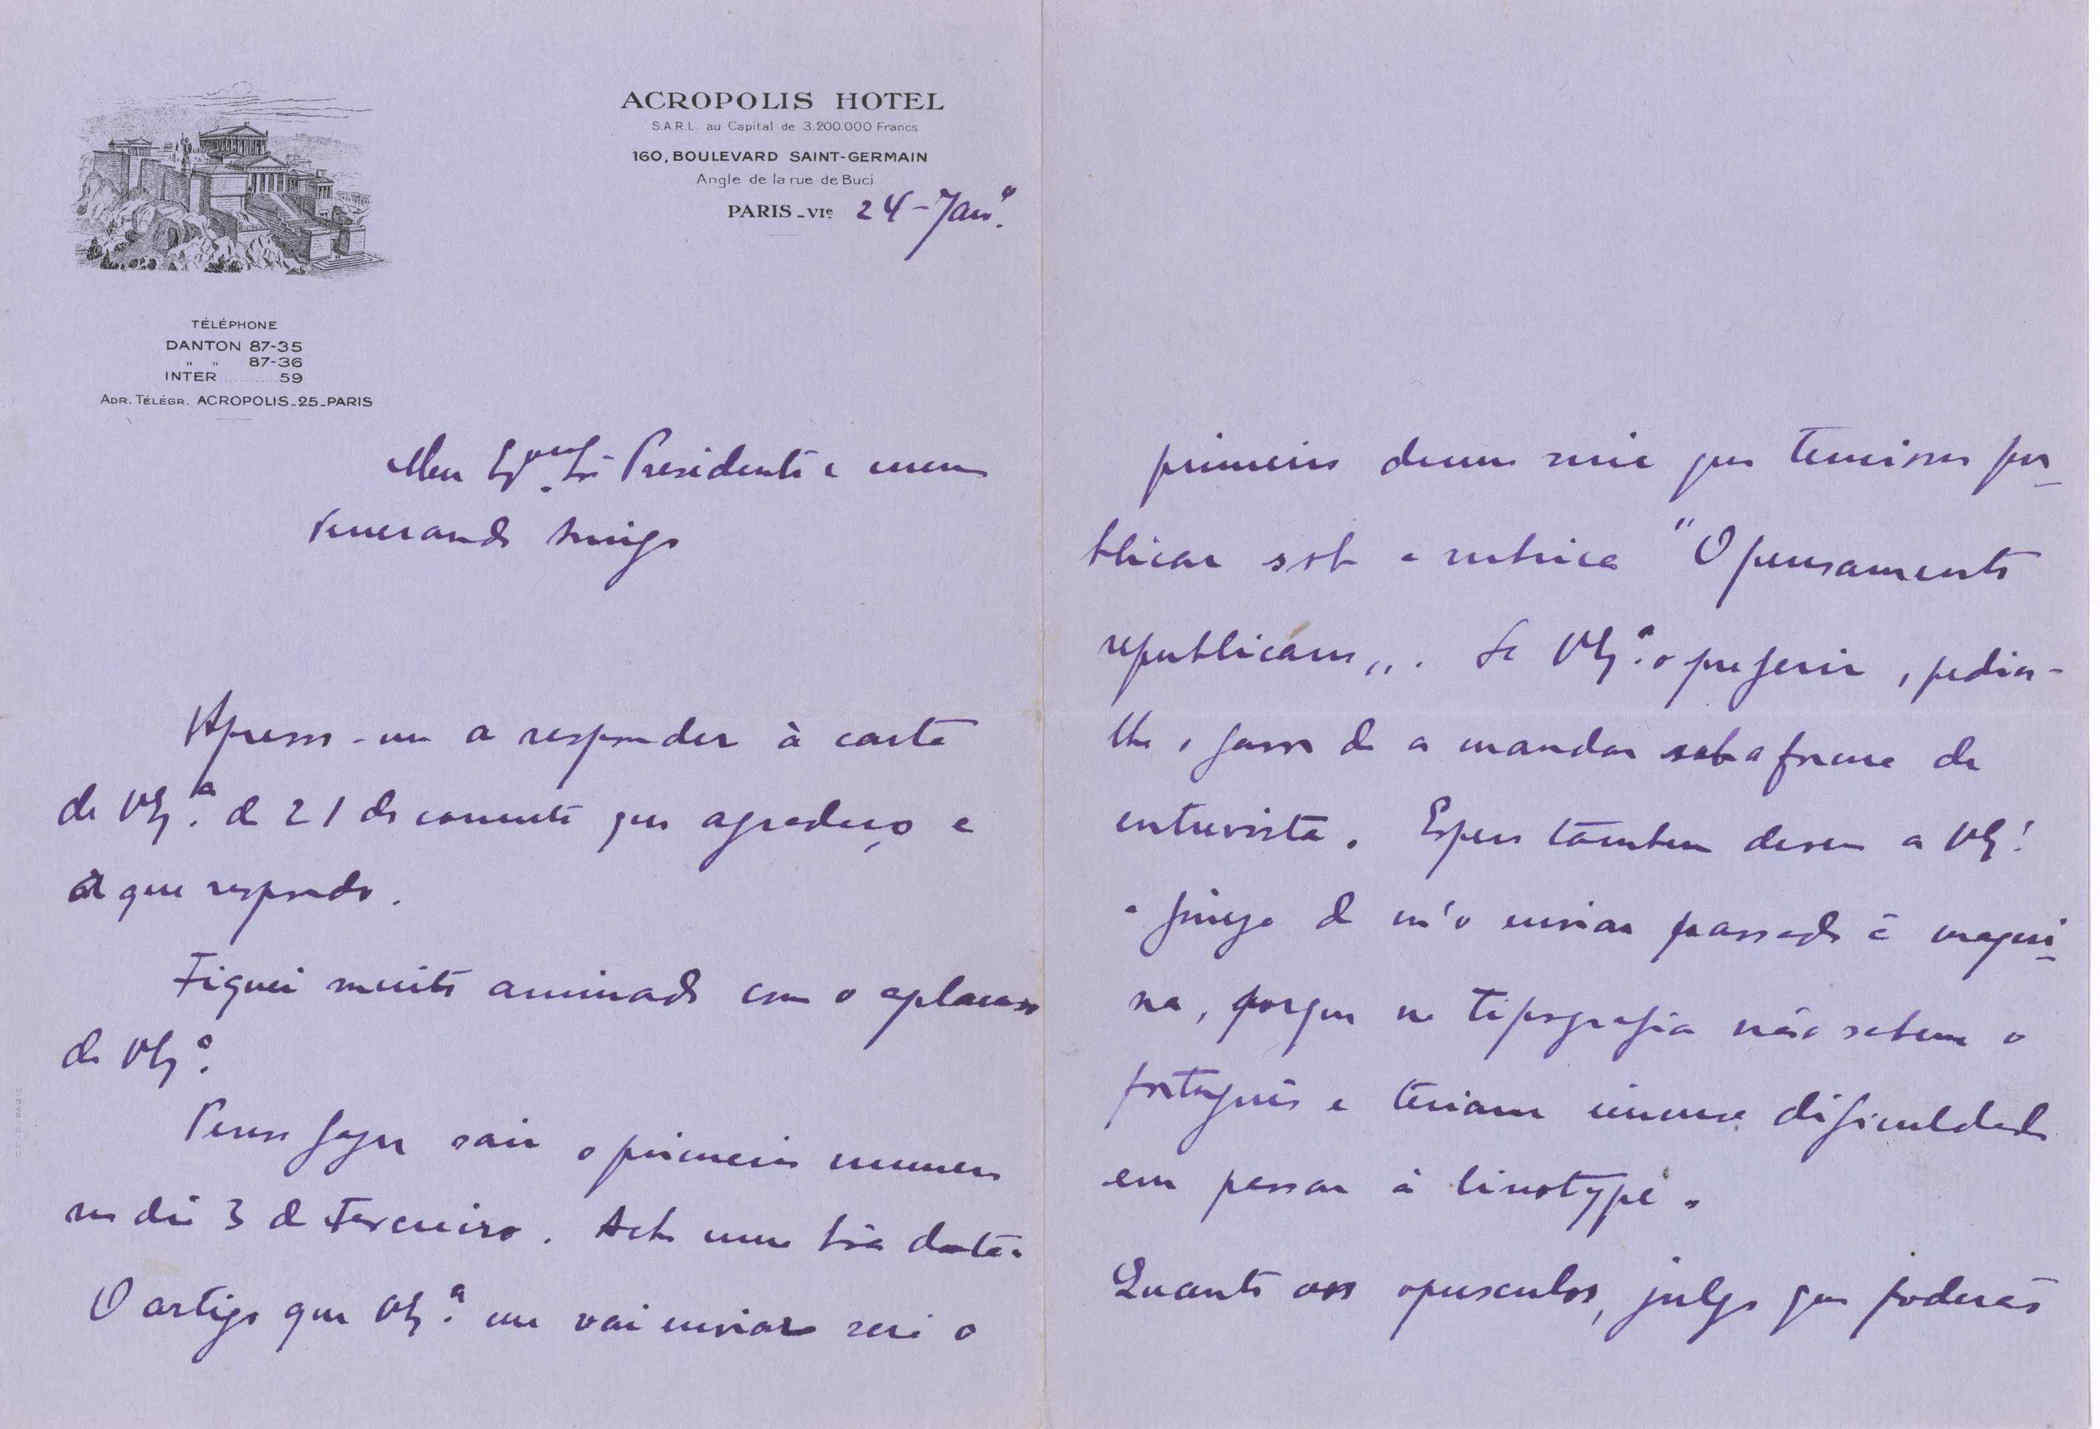 ACROPOLIS HOTEL
S.A.R.L. au Capital de 3.200.000 Francs
160, BOULEVARD SAINT-GERMAIN
Angle de la rue de Buci
PARIS_VIe 24-Janº.
TÉLÉPHONE
DANTON 87-35
" " 87-36
INTER ........... 59
ADR. TÉLÉGR. ACROPOLIS_25_PARIS
Meu Exmo Sr Presidente e meu
venerando Amigo
Apresso-me a responder à carta
de VEx.ª de 21 do corrente que agradeço e
a que respondo.
Fiquei muito animado com o aplauso
de VEx.ª
Penso fazer sair o primeiro numero
no dia 3 de Fevereiro. Acho uma bôa data.
O artigo que VEx.ª me vai enviar será o
primeiro duma serie que pu-
blicar sob a rubrica "O pensamento
republicano". Se VEx.ª o preferir, pedia-
lhe o favor de a mandar sob a forma de
entrevista. Espero tambem dever a VEx.ª
a fineza de m'o enviar passado á maqui-
na, porque na tipografia não sabem o
português e teriam imensa dificuldade
em passar á linotype.
Quanto aos opusculos, julgo que poderão